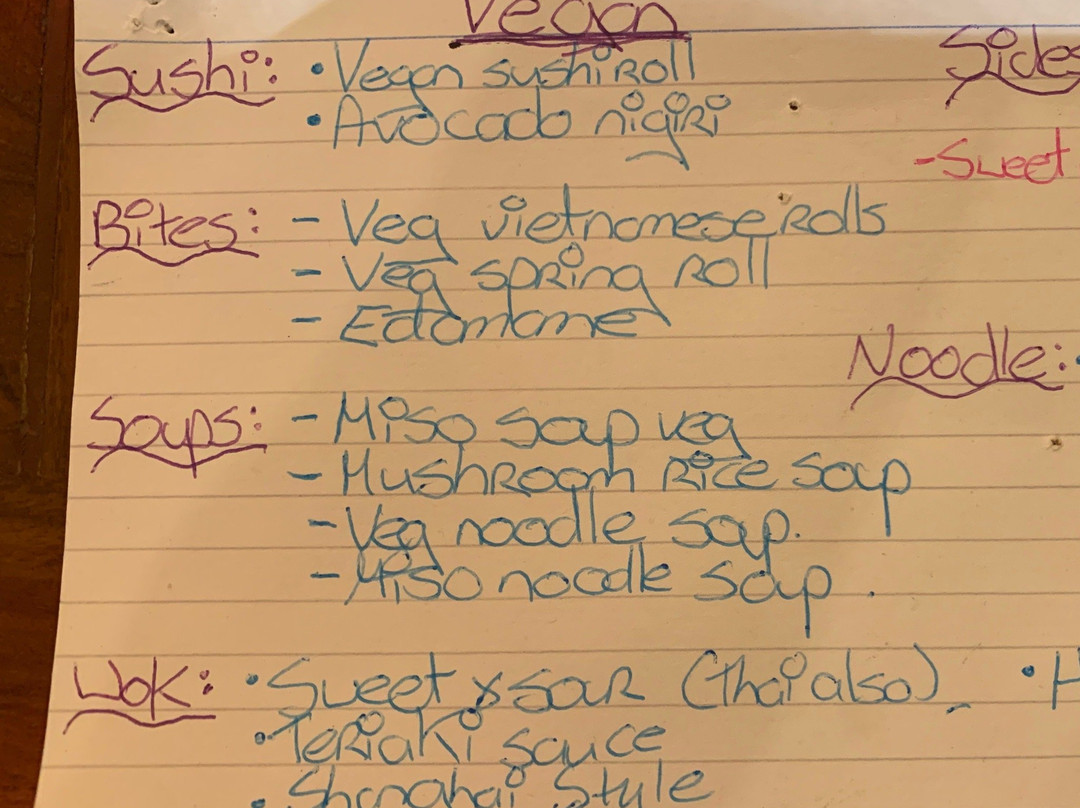 Vegan
Sushi: • Vegan sushi Roll
• Avocado nigiri
Sides
- Sweet
Bites: - Veg vietnamese Rolls
- Veg spring Roll
- Edamame
Noodle:
Soups: - Miso soup veg
- Mushroom Rice soup
- Veg noodle soup.
- Miso noodle soup.
Wok: • Sweet & sour (Thai also)
• Teriaki sauce
• Shanghai Style